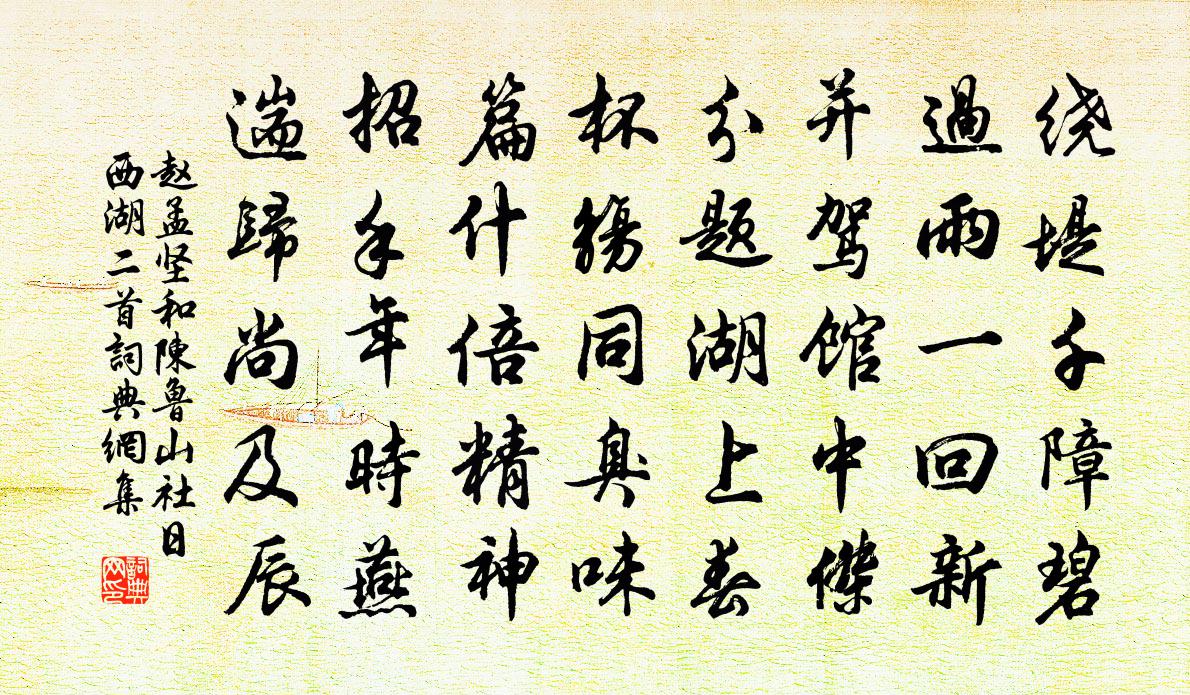 绕堤千障碧
過雨一回新
并驾馆中傑
分题湖上春
杯觞同臭味
篇什倍精神
招手年時燕
遄歸尚及辰
赵孟坚和陳鲁山社日
西湖二首詞典網集
詞典网印